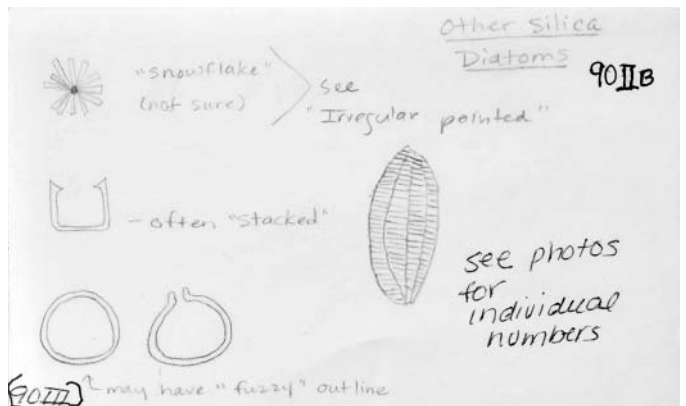 Other Silica
Diatoms
90IIB
"snowflake"
(not sure)
see
"Irregular pointed"
- often "stacked"
see photos
for
individual
numbers
(90III)
may have "fuzzy" outline